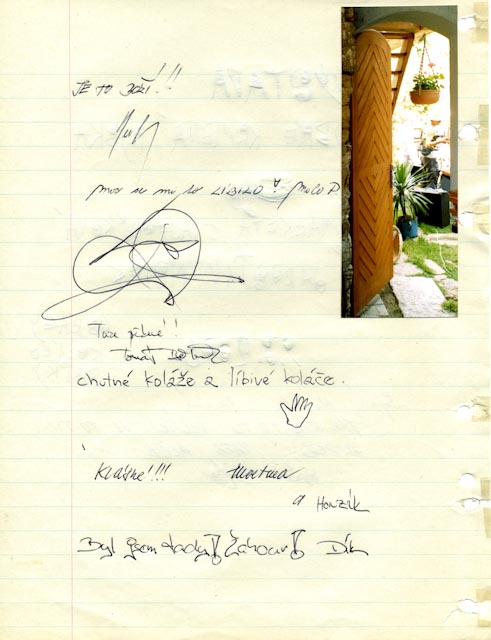 JE TO BOŽÍ!!
MOC SE MI TO LÍBILO A
Táta pěkné!!
Tomáš
chutné koláže a líbivé koláče.
Krásné!!! Martina
a Honzík
Byl jsem tady! Žáhour! Dík